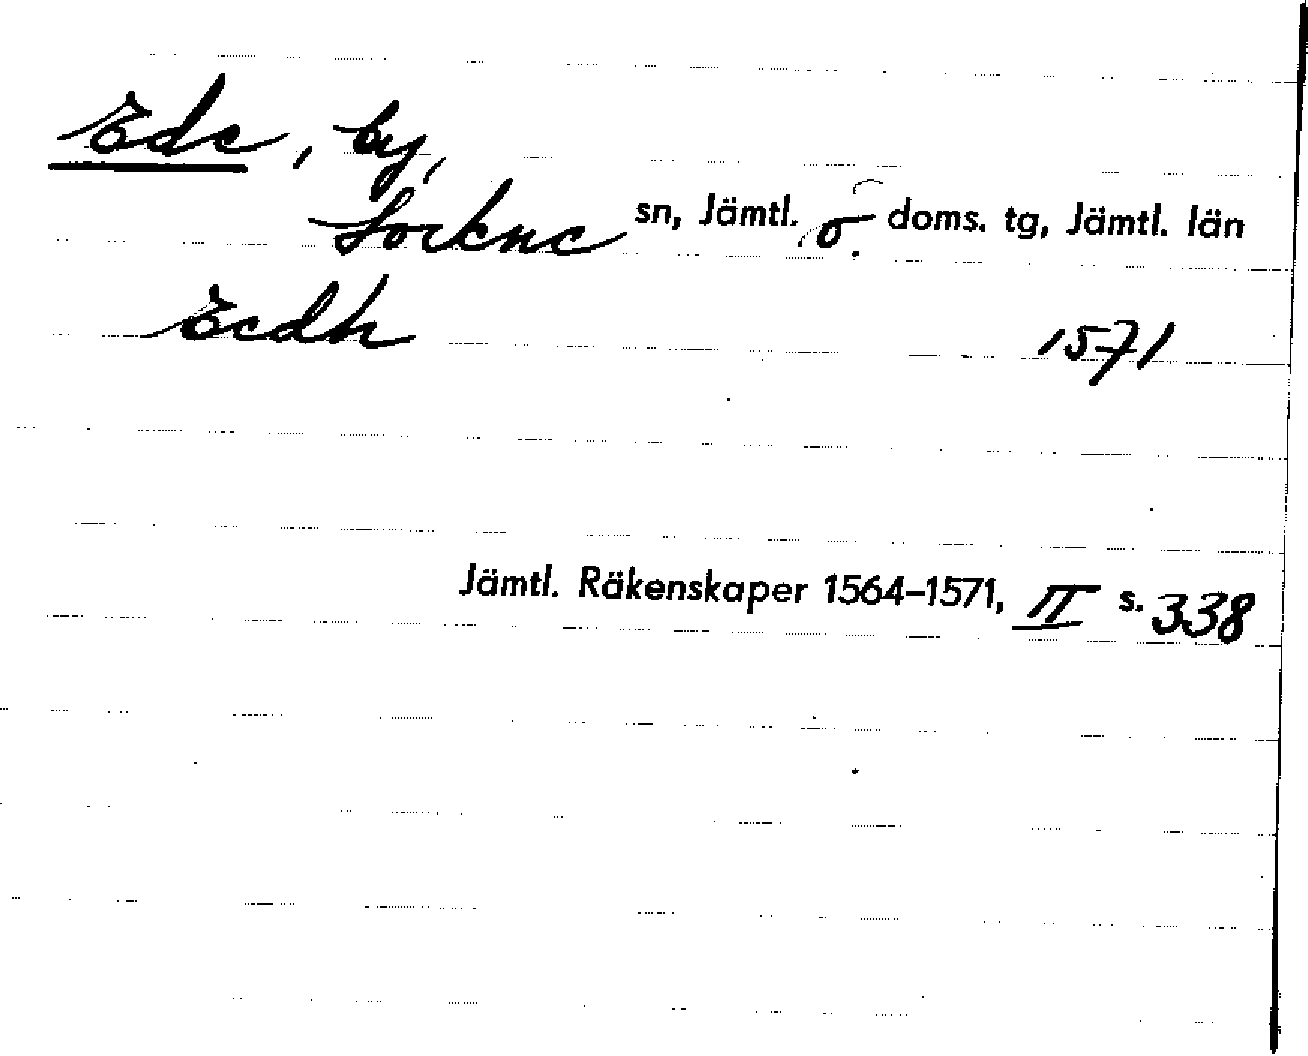 Ede, by,
Lockne sn, Jämtl. ö. doms. tg, Jämtl. län
Eedh 1571
Jämtl. Räkenskaper 1564–1571, II s. 338